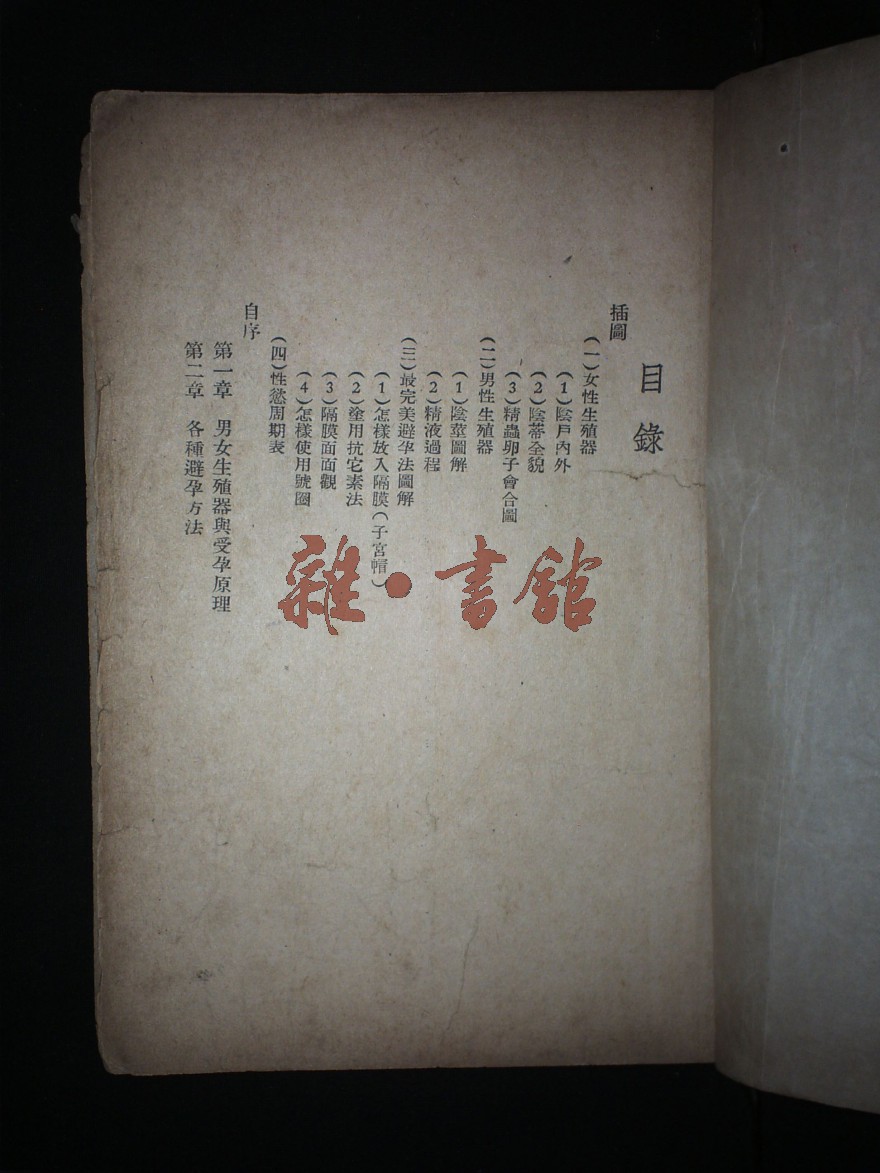 目錄
插圖
(一)女性生殖器
(1)陰戶內外
(2)陰蒂全貌
(3)精蟲卵子會合圖
(二)男性生殖器
(1)陰莖圖解
(2)精液過程
(三)最完美避孕法圖解
(1)怎樣放入隔膜(子宮帽)
(2)塗用抗它素法
(3)隔膜面面觀
(4)怎樣使用號圈
(四)性慾周期表
自序
第一章 男女生殖器與受孕原理
第二章 各種避孕方法
雜·書館